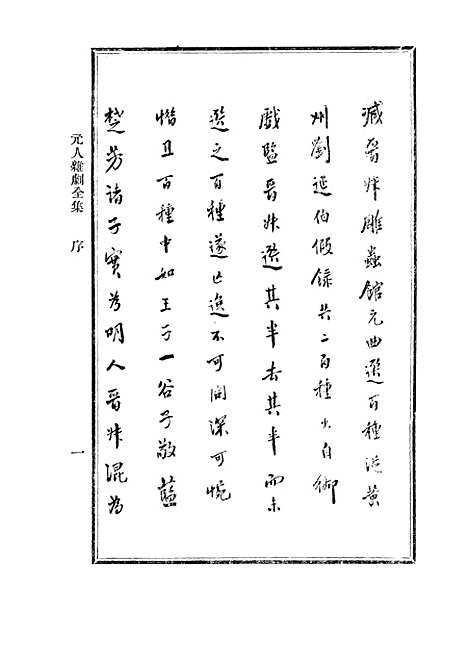 臧晉叔雕蟲館元曲選百種從黃
州劉延伯假錄共二百種出自御
戲監晉叔選其半去其半而未
選之百種遂亡逸不可問深可惋
惜且百種中如王子一谷子敬藍
楚芳諸子實為明人晉叔混為
元人雜劇全集 序
一